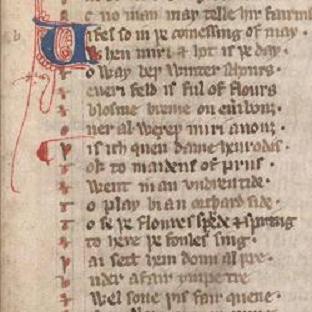 ⁊ no man may telle hir fairnise
Bifel so in þe comessing of may
When miri ⁊ hot is þe day
⁊ oway beþ winter schours
⁊ eueri feld is ful of flours
⁊ blosme breme on eueri bouȝ
Oueral wexeþ miri anouȝ
Þis ich quen dame heurodis
Tok to maidens of priis
⁊ went in an vndrentide
To play bi an orchard side
To se þe floures sprede ⁊ spring
⁊ to here þe foules sing
Þai sett hem doun al þre
Vnder a fair ympe tre
⁊ wel sone þis fair quene